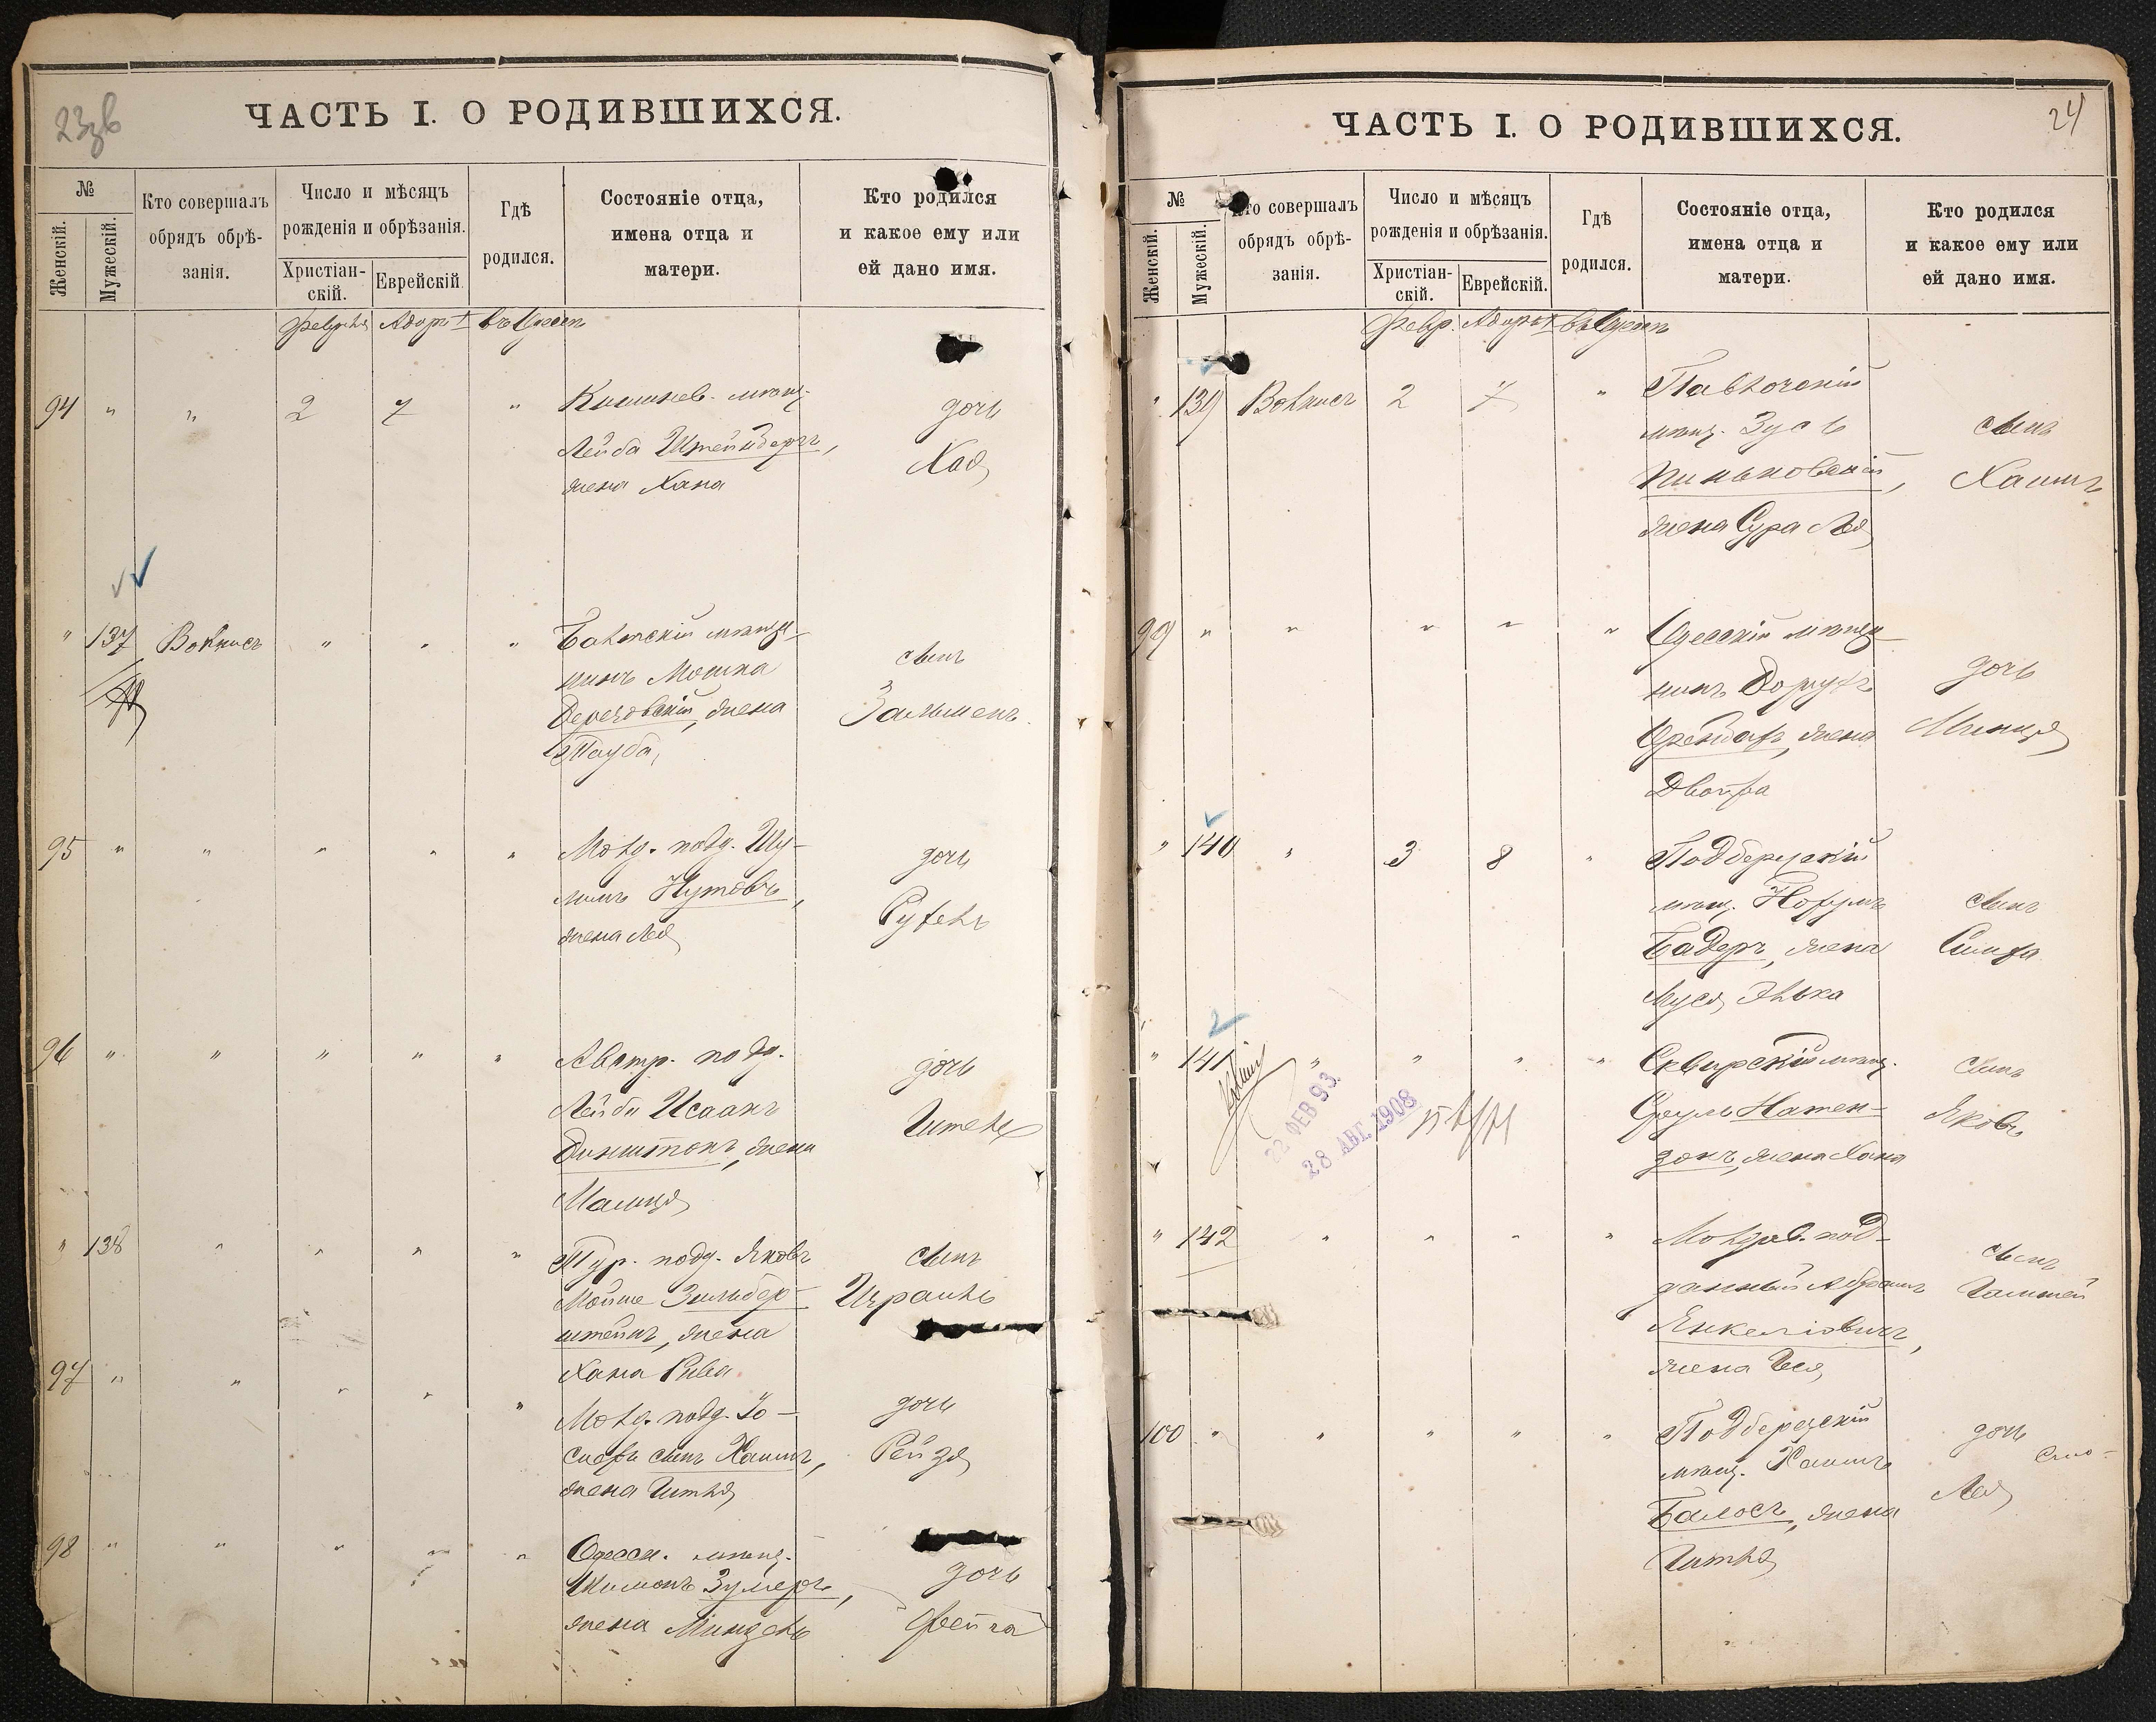 23зв
ЧАСТЬ I. О РОДИВШИХСЯ.
№
Женскій.
Мужескій.
Кто совершалъ
обрядъ обрѣ-
занія.
Число и мѣсяцъ
рожденія и обрѣзанія.
Христіан-
скій.
Еврейскій.
Гдѣ
родился.
Состояніе отца,
имена отца и
матери.
Кто родился
и какое ему или
ей дано имя.
Февраля Адаръ I въ Одессѣ
94 " " 2 7 "
Кишинев. мѣщ.
Лейба Штейнбергъ,
жена Хана
дочь
Хая
" 137 " " "
мѣща-
нинъ Мошка
жена
Тауба,
сынъ
Зальменъ
95 " " " " "
Молд. подд. Шу-
лимъ Нутовъ,
жена Лея
дочь
Рухель
96 " " " " "
Австр. подд.
Лейба Исаакъ
жена
Малця
дочь
" 138 " " " "
Тур. подд. Яковъ
Мойше Зильбер-
штейнъ, жена
Хана Рива
сынъ
Израиль
97 " " " " "
Молд. подд. Іо-
сифъ сынъ Хаимъ,
жена Гитля
дочь
Рейзя
98 " " " " "
Одесск. мѣщ.
Шимонъ Зумеръ,
жена Миндель
дочь
Фейга
24
ЧАСТЬ I. О РОДИВШИХСЯ.
№
Женскій.
Мужескій.
Кто совершалъ
обрядъ обрѣ-
занія.
Число и мѣсяцъ
рожденія и обрѣзанія.
Христіан-
скій.
Еврейскій.
Гдѣ
родился.
Состояніе отца,
имена отца и
матери.
Кто родился
и какое ему или
ей дано имя.
Февр. Адаръ I въ Одессѣ
" 139 2 7 "
Павлочскій
мѣщ. Зусь
Пиньковскій,
жена Сура Лея
сынъ
Хаимъ
99 " " " " "
Одесскій мѣща-
нинъ
жена
Двойра
дочь
Минця
" 140 " 3 8 "
Подберезскій
мѣщ. Нохумъ
Бадеръ, жена
Муся Элька
сынъ
Симха
" 141 " " " "
22 ФЕВ 93.
28 АВГ. 1908
Сквирскій мѣщ.
Сруль Натен-
зонъ, жена Хана
сынъ
Яковъ
" 142 " " " "
Молдав. под-
данный Абрамъ
Янкеліовичъ,
жена
сынъ
100 " " " " "
Подберезскій
мѣщ. Хаимъ
Балосъ, жена
Гитля
дочь
Лея